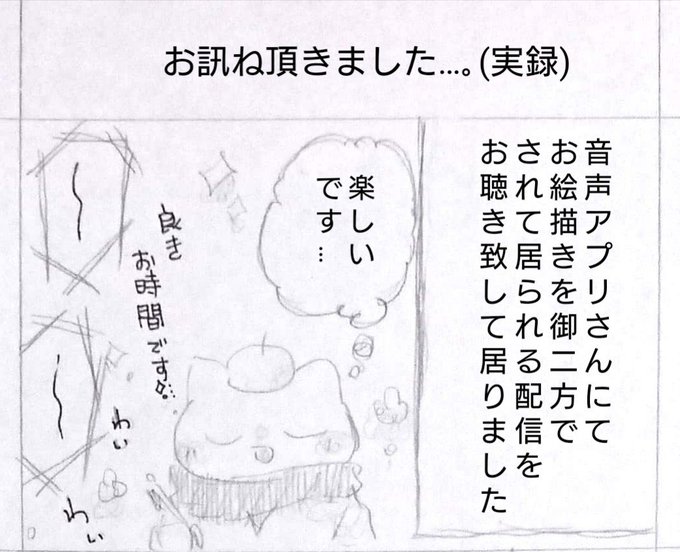 お訊ね頂きました…。(実録)
音声アプリさんにて
お絵描きを御二方で
されて居られる配信を
お聴き致して居りました
楽しい
です…
良き
お時間です
わい
わい